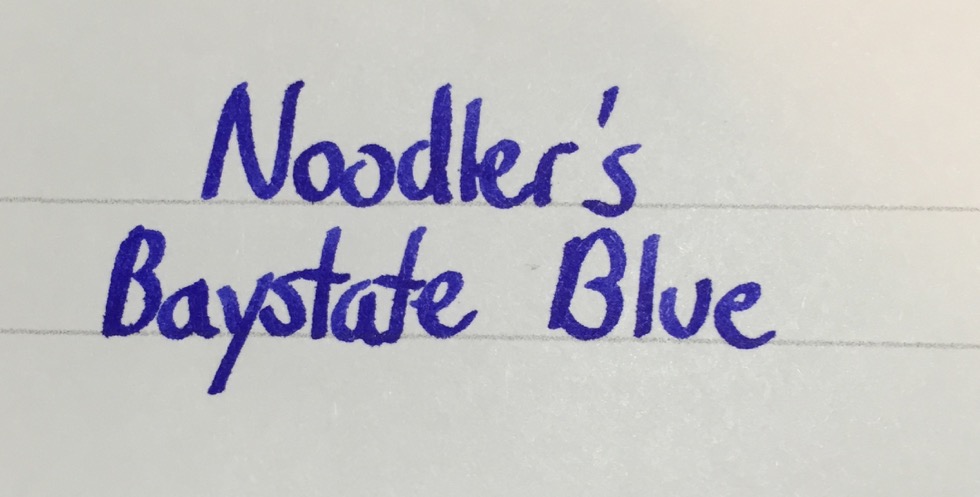 Noodler's
Baystate Blue